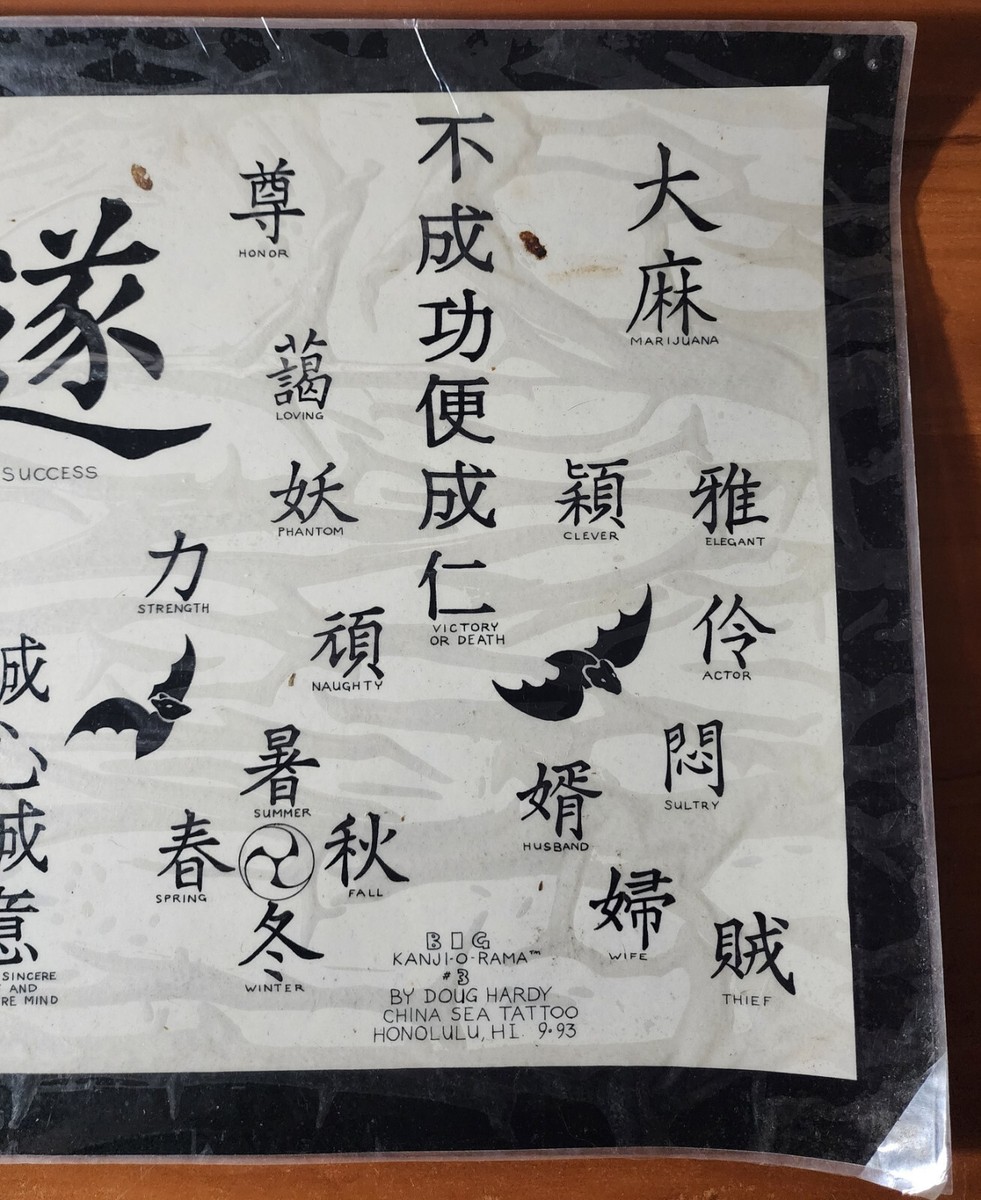 遂
SUCCESS
尊
HONOR
藹
LOVING
妖
PHANTOM
力
STRENGTH
頑
NAUGHTY
不成功便成仁
VICTORY
OR DEATH
大麻
MARIJUANA
穎
CLEVER
雅
ELEGANT
伶
ACTOR
悶
SULTRY
婿
HUSBAND
婦
WIFE
賊
THIEF
暑
SUMMER
春
SPRING
秋
FALL
冬
WINTER
誠心誠意
SINCERE
AND
RE MIND
BIG
KANJI-O-RAMA™
#3
BY DOUG HARDY
CHINA SEA TATTOO
HONOLULU, HI. 9·93